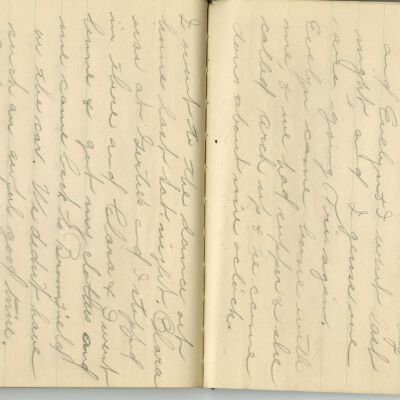 and Evelyn & I went last
night, and I guess we
are going Fri again.
Evelyn came home with
me & we had supper & she
called Arch up & he came
down about nine oclock.
I went to the dance up
home last Sat night & Clara
was at and I stopped
in there and Clara & I went
home & got my clothes and
we came back to
in the car. We didn't have
such an awful good time.